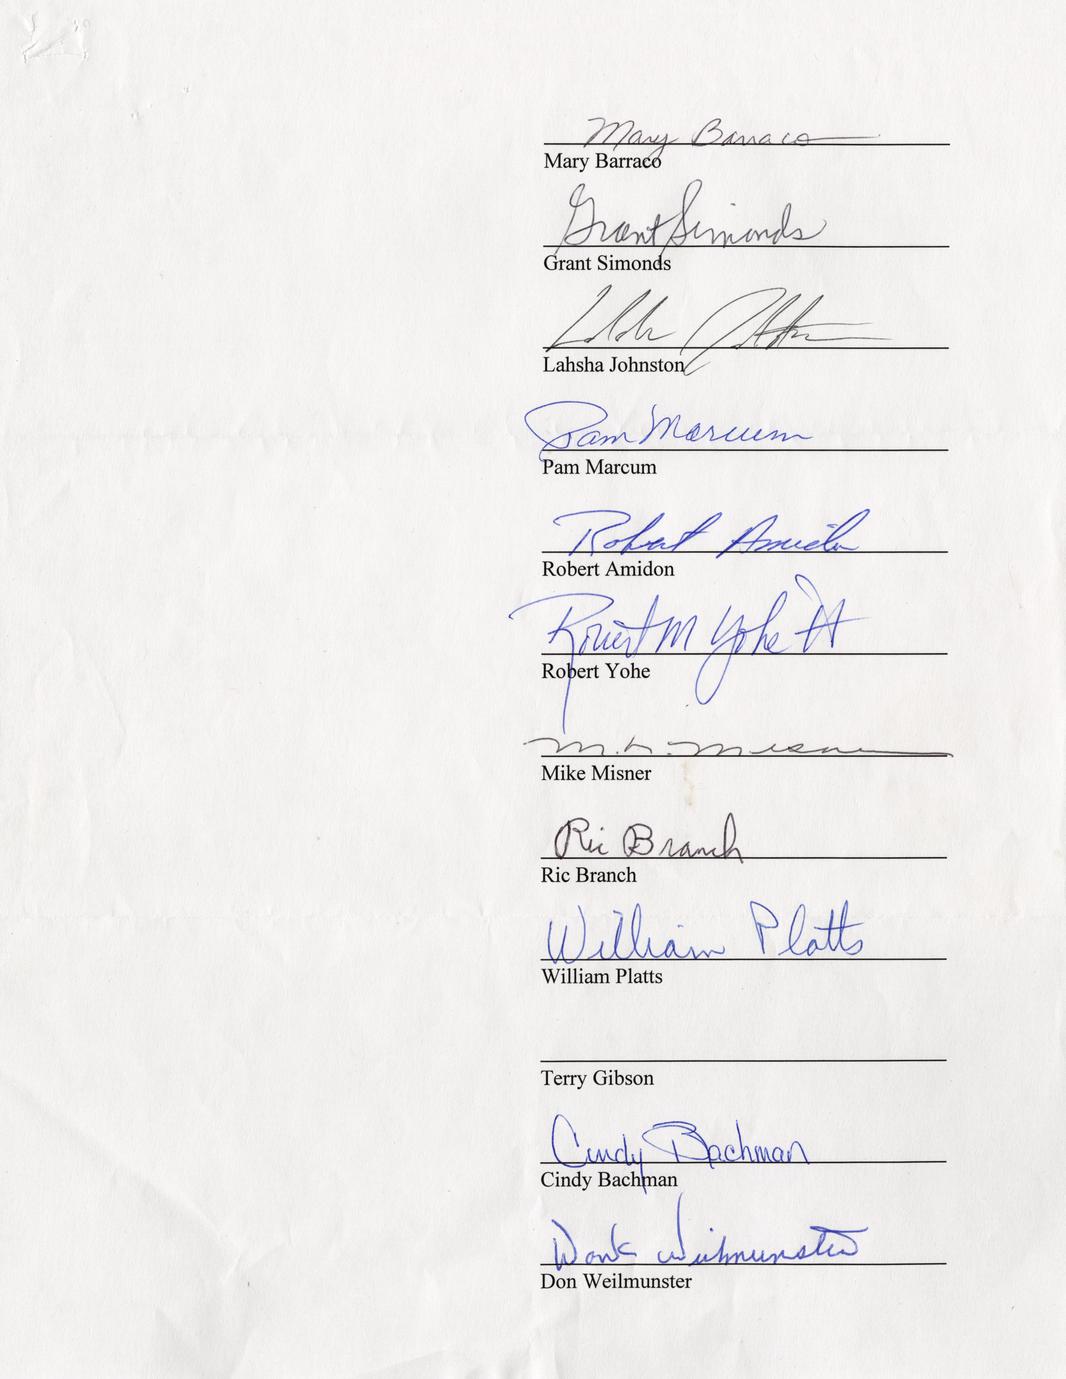 Mary Barraco
Mary Barraco
Grant Simonds
Grant Simonds
Lahsha Johnston
Pam Marcum
Pam Marcum
Robert Amidon
Robert Amidon
Robert M Yohe II
Robert Yohe
M. L. Misner
Mike Misner
Ric Branch
Ric Branch
William Platts
William Platts
Terry Gibson
Cindy Bachman
Cindy Bachman
Weilmunster
Don Weilmunster